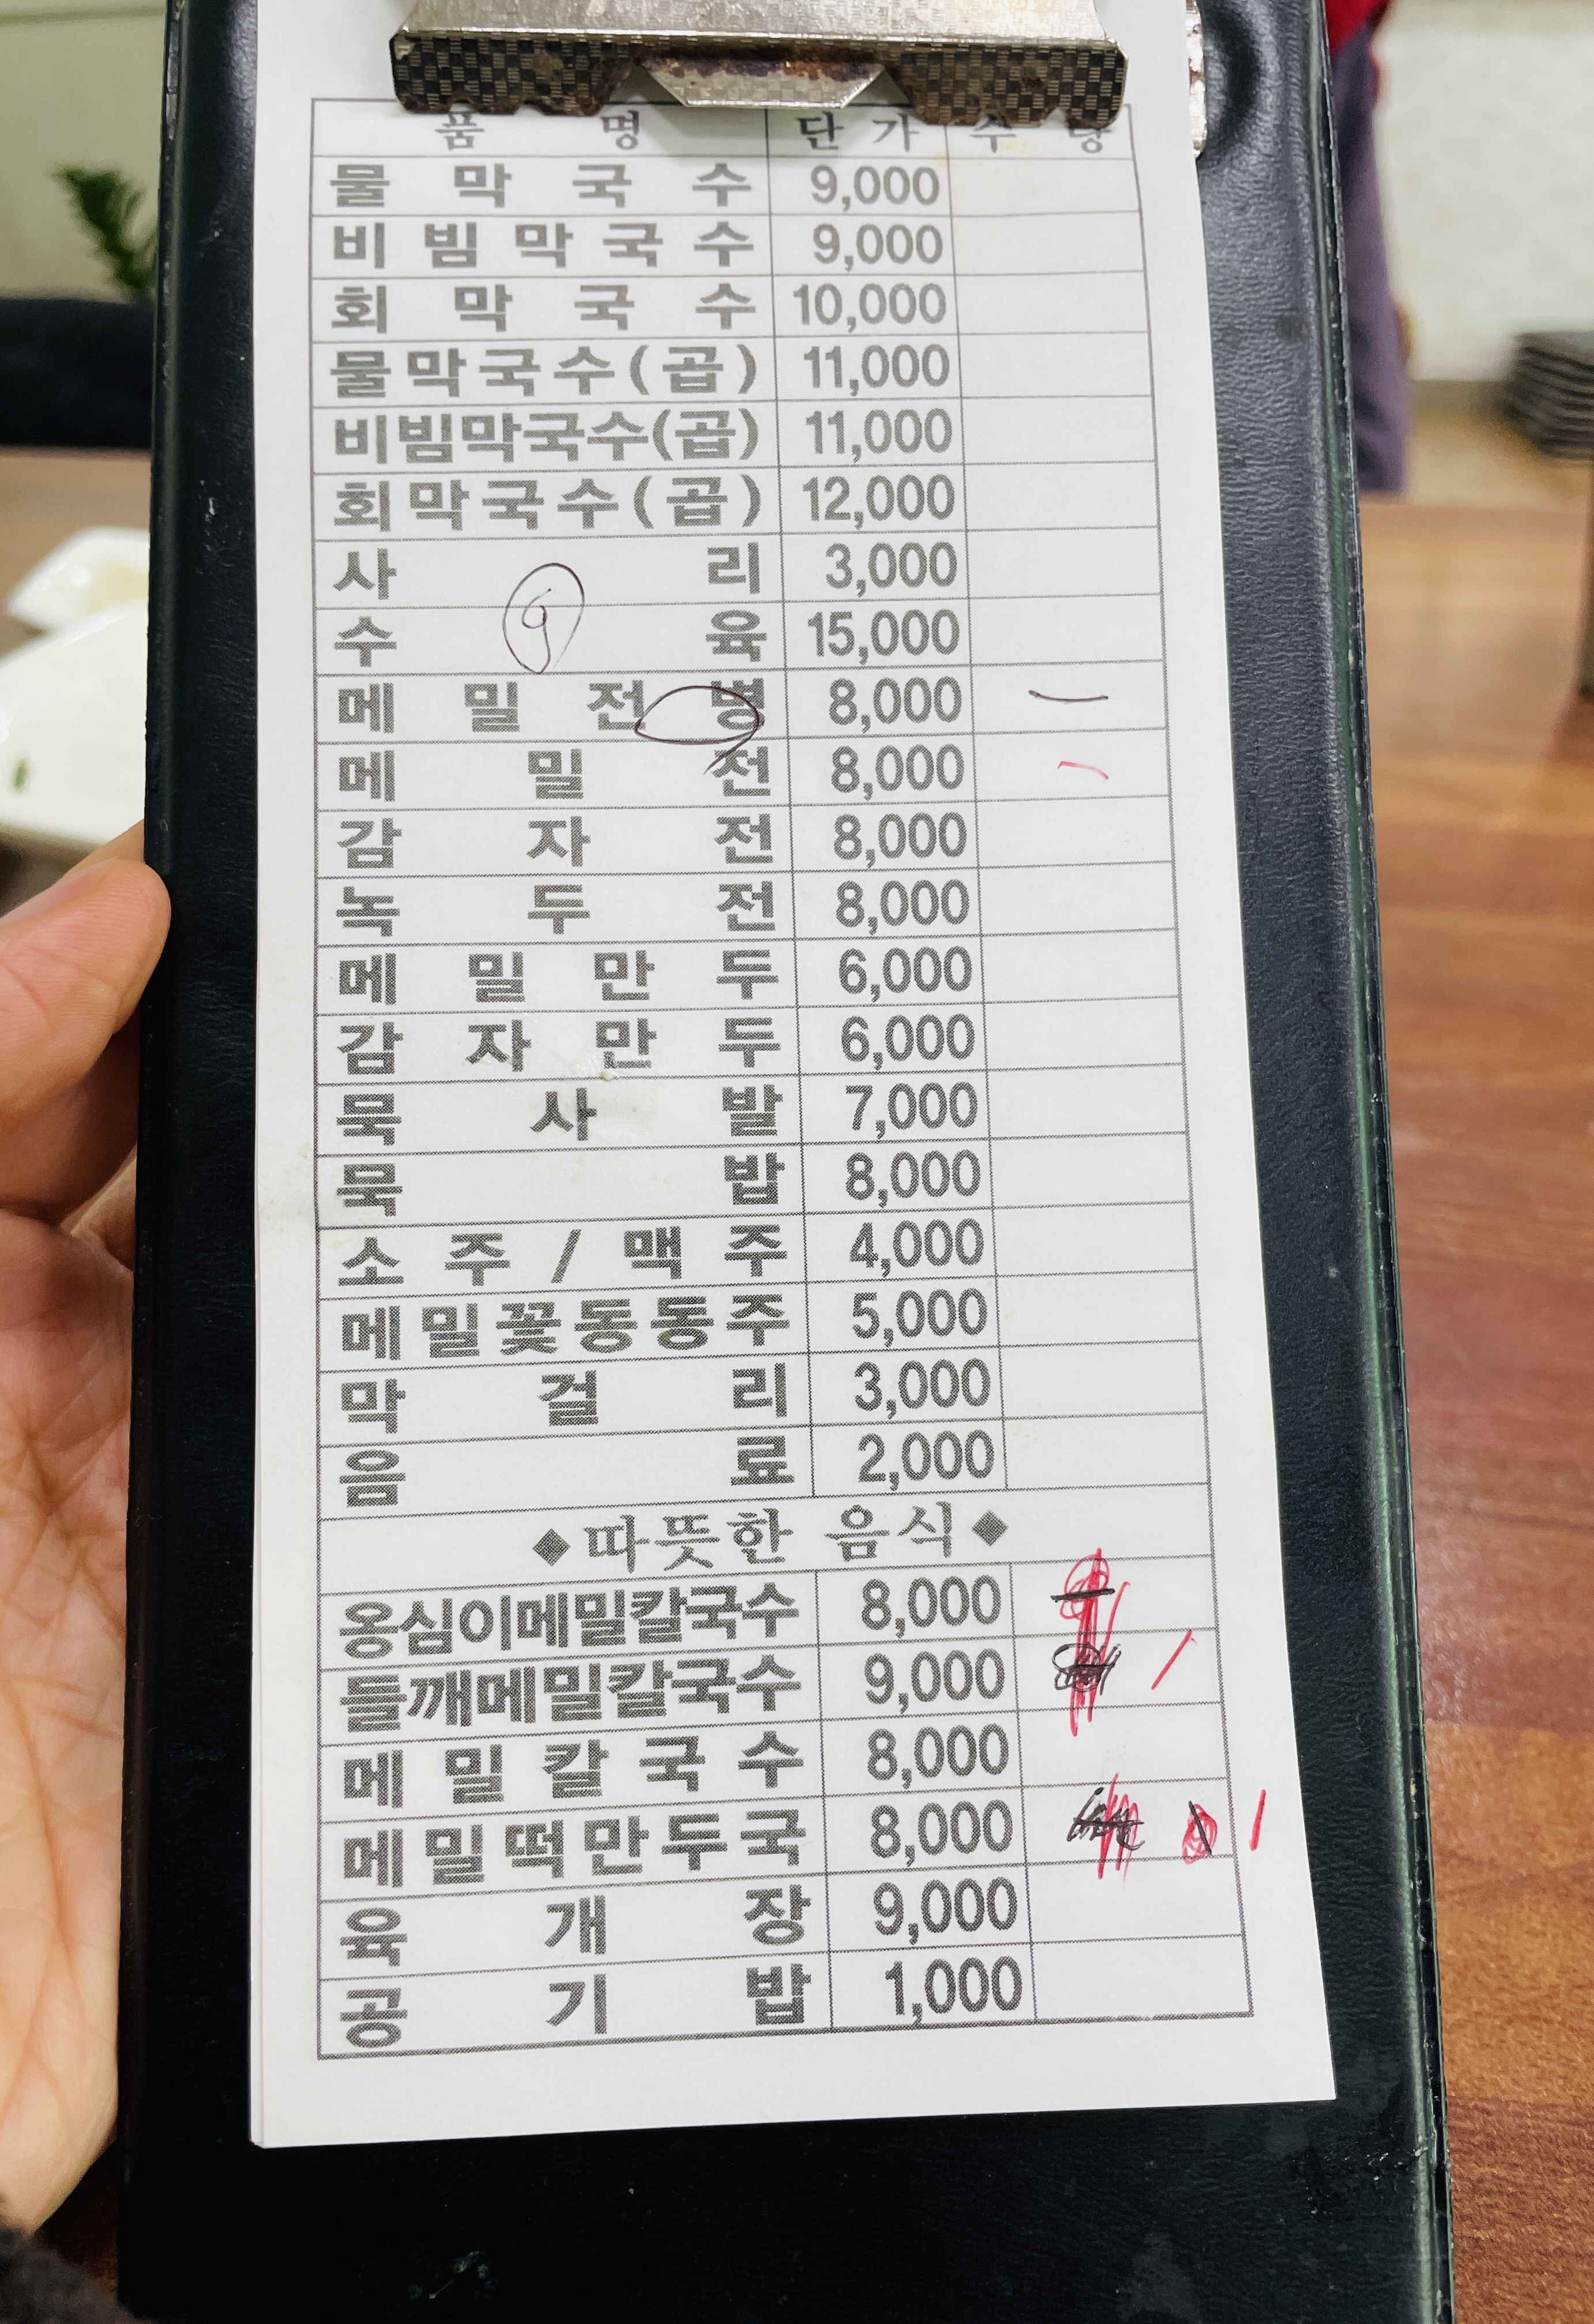 품명 단가 수량
물막국수 9,000
비빔막국수 9,000
회막국수 10,000
물막국수(곱) 11,000
비빔막국수(곱) 11,000
회막국수(곱) 12,000
사리 3,000
수육 15,000
메밀전병 8,000
메밀전 8,000
감자전 8,000
녹두전 8,000
메밀만두 6,000
감자만두 6,000
묵사발 7,000
묵밥 8,000
소주/맥주 4,000
메밀꽃동동주 5,000
막걸리 3,000
음료 2,000
◆따뜻한 음식◆
옹심이메밀칼국수 8,000
들깨메밀칼국수 9,000
메밀칼국수 8,000
메밀떡만두국 8,000
육개장 9,000
공기밥 1,000